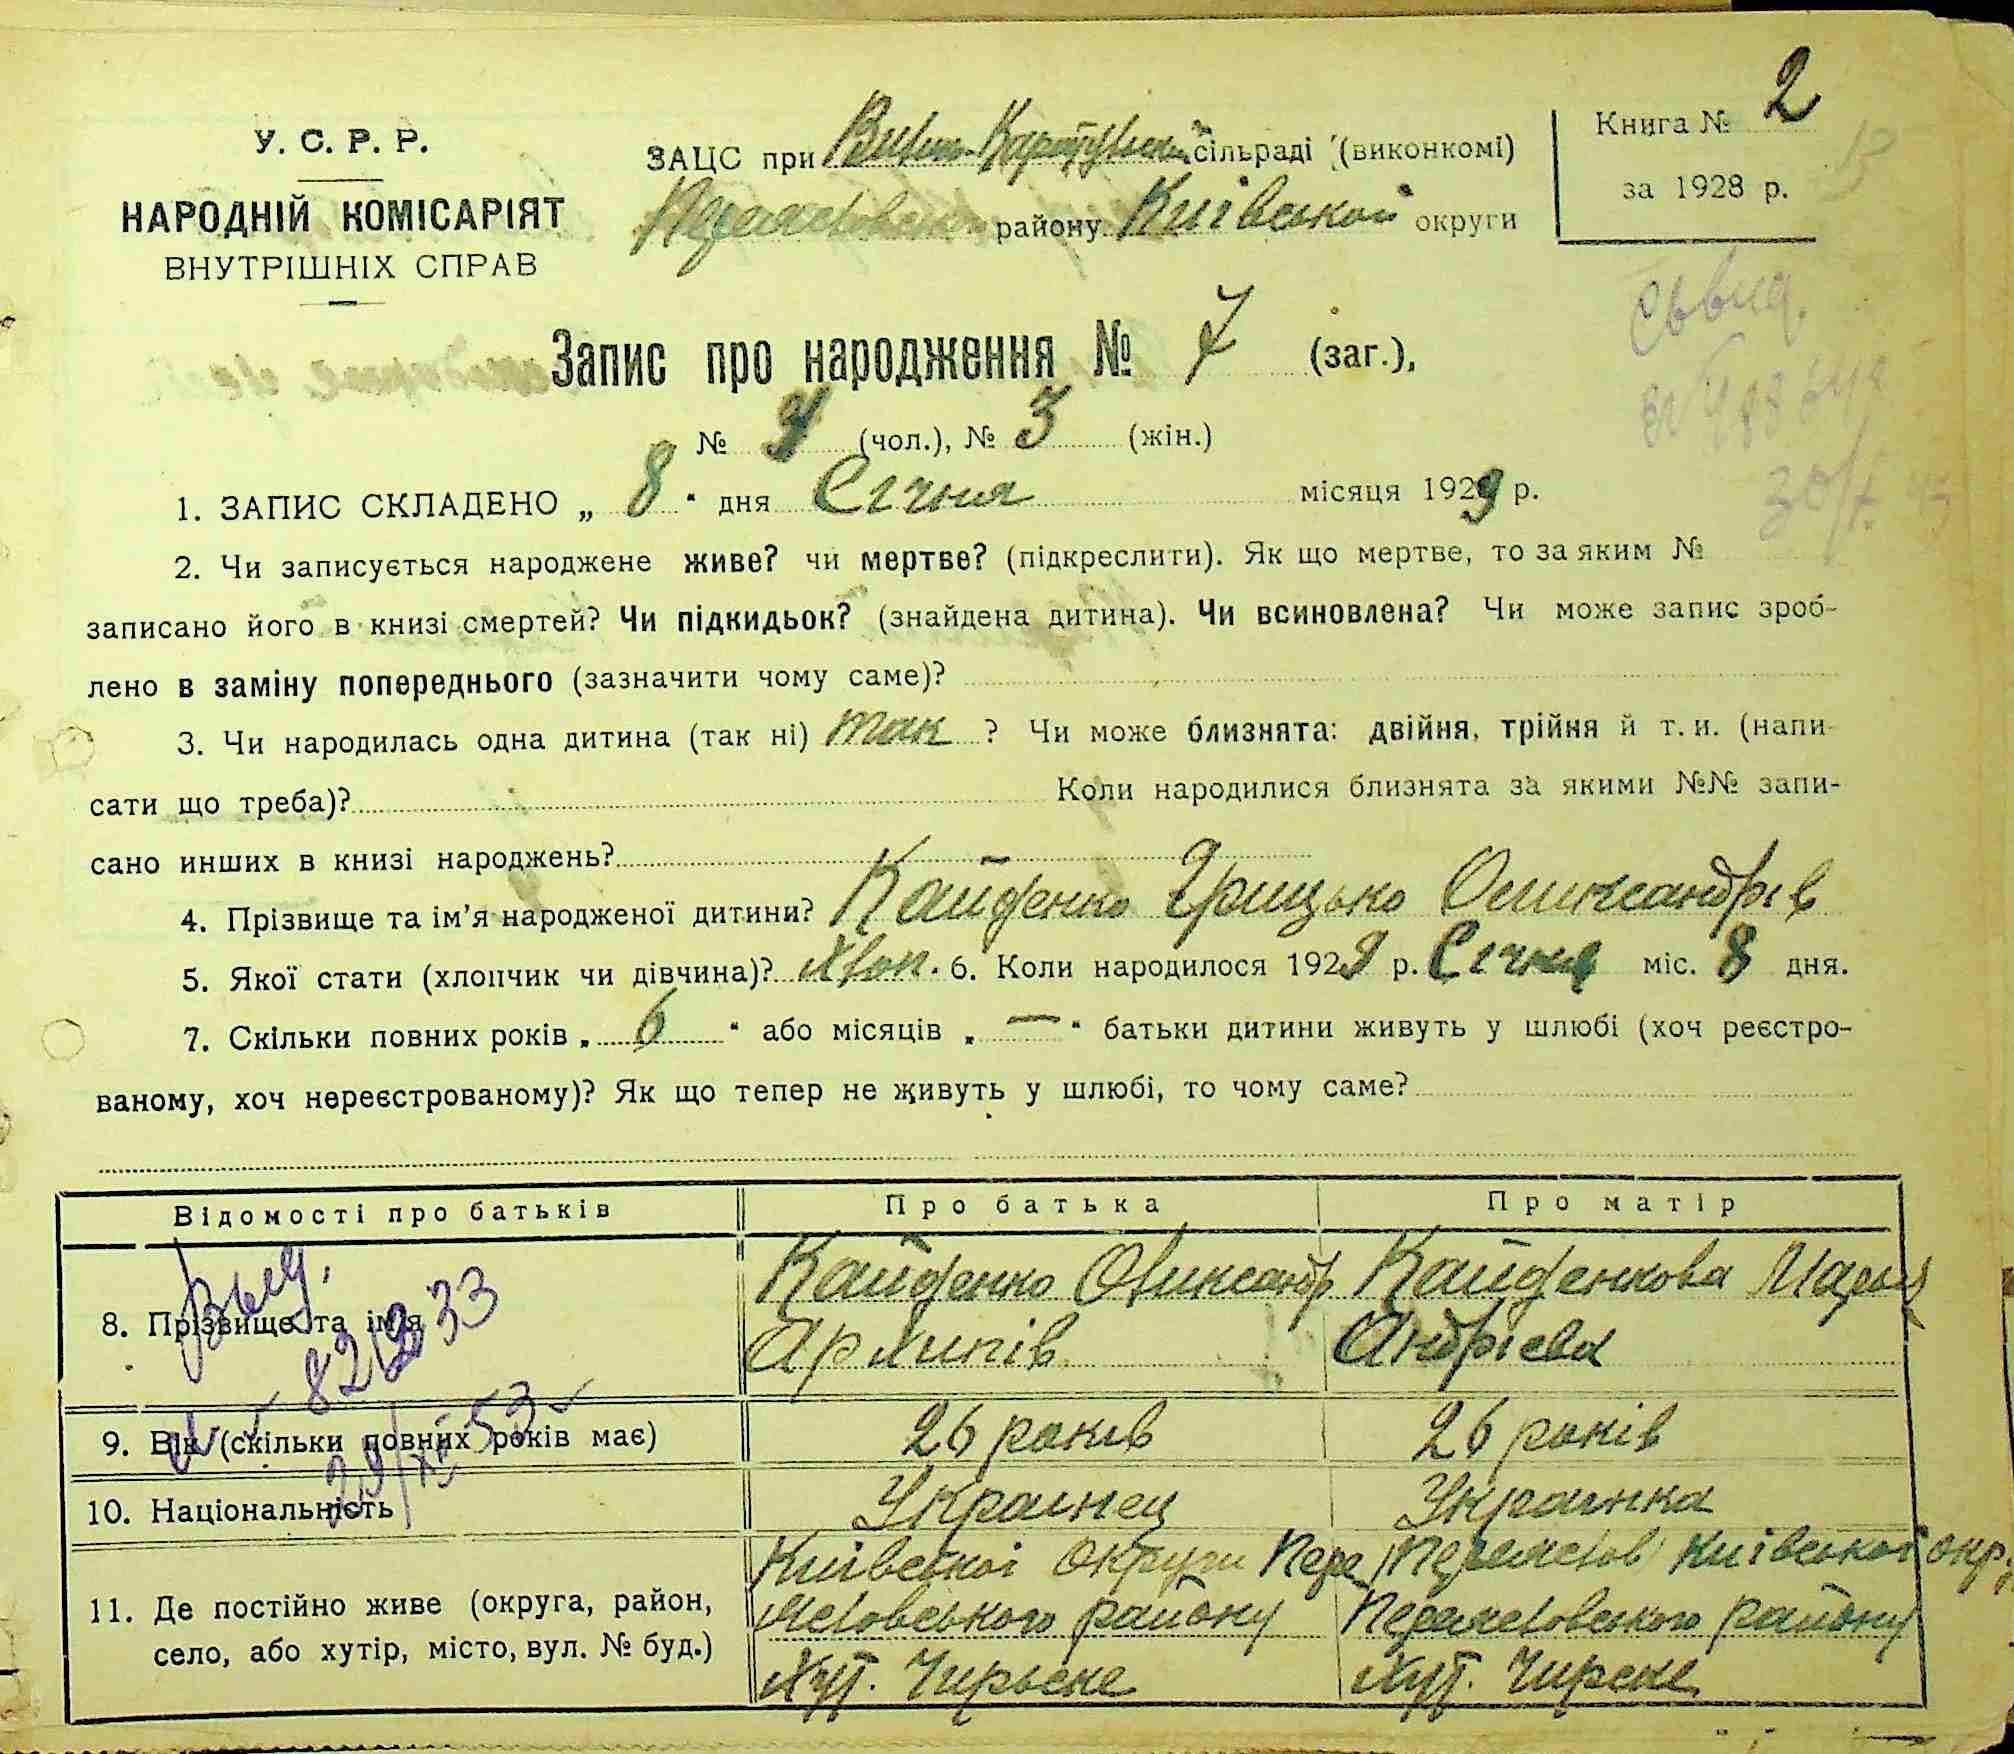 У. С. Р. Р.
НАРОДНІЙ КОМІСАРІЯТ
ВНУТРІШНІХ СПРАВ
ЗАЦС при сільраді (виконкомі)
району Київської округи
Книга № 2
за 1928 р.
Запис про народження № 7 (заг.),
№ 4 (чол.), № 3 (жін.)
1. ЗАПИС СКЛАДЕНО „ 8 “ дня Січня місяця 1929 р.
2. Чи записується народжене живе? чи мертве? (підкреслити). Як що мертве, то за яким №
записано його в книзі смертей? Чи підкидьок? (знайдена дитина). Чи всиновлена? Чи може запис зроб-
лено в заміну попереднього (зазначити чому саме)?
3. Чи народилась одна дитина (так ні) так ? Чи може близнята: двійня, трійня й т. и. (напи-
сати що треба)? Коли народилися близнята за якими №№ запи-
сано инших в книзі народжень?
4. Прізвище та ім’я народженої дитини? Кайденко Грицько Олександрів
5. Якої стати (хлопчик чи дівчина)? Хлоп. 6. Коли народилося 1929 р. Січня міс. 8 дня.
7. Скільки повних років „ 6 “ або місяців „ — “ батьки дитини живуть у шлюбі (хоч реєстро-
ваному, хоч нереєстрованому)? Як що тепер не живуть у шлюбі, то чому саме?
Відомості про батьків Про батька Про матір
8. Прізвище та ім’я Кайденко Олександр Архипів
Кайденкова Марія Андрієва
9. Вік (скільки повних років має) 26 років 26 років
10. Національність Украінец Украінка
11. Де постійно живе (округа, район,
село, або хутір, місто, вул. № буд.)
Київської округи
району
Хут. Чирське
Київської окр.
району
Хут. Чирске
Выд.
29/XII 53